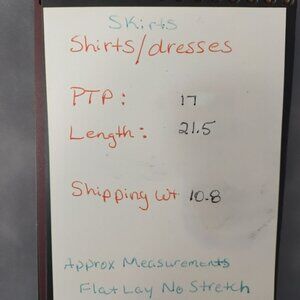 Skirts
Shirts/dresses
PTP: 17
Length: 21.5
Shipping wt 10.8
Approx Measurements
Flat Lay No Stretch